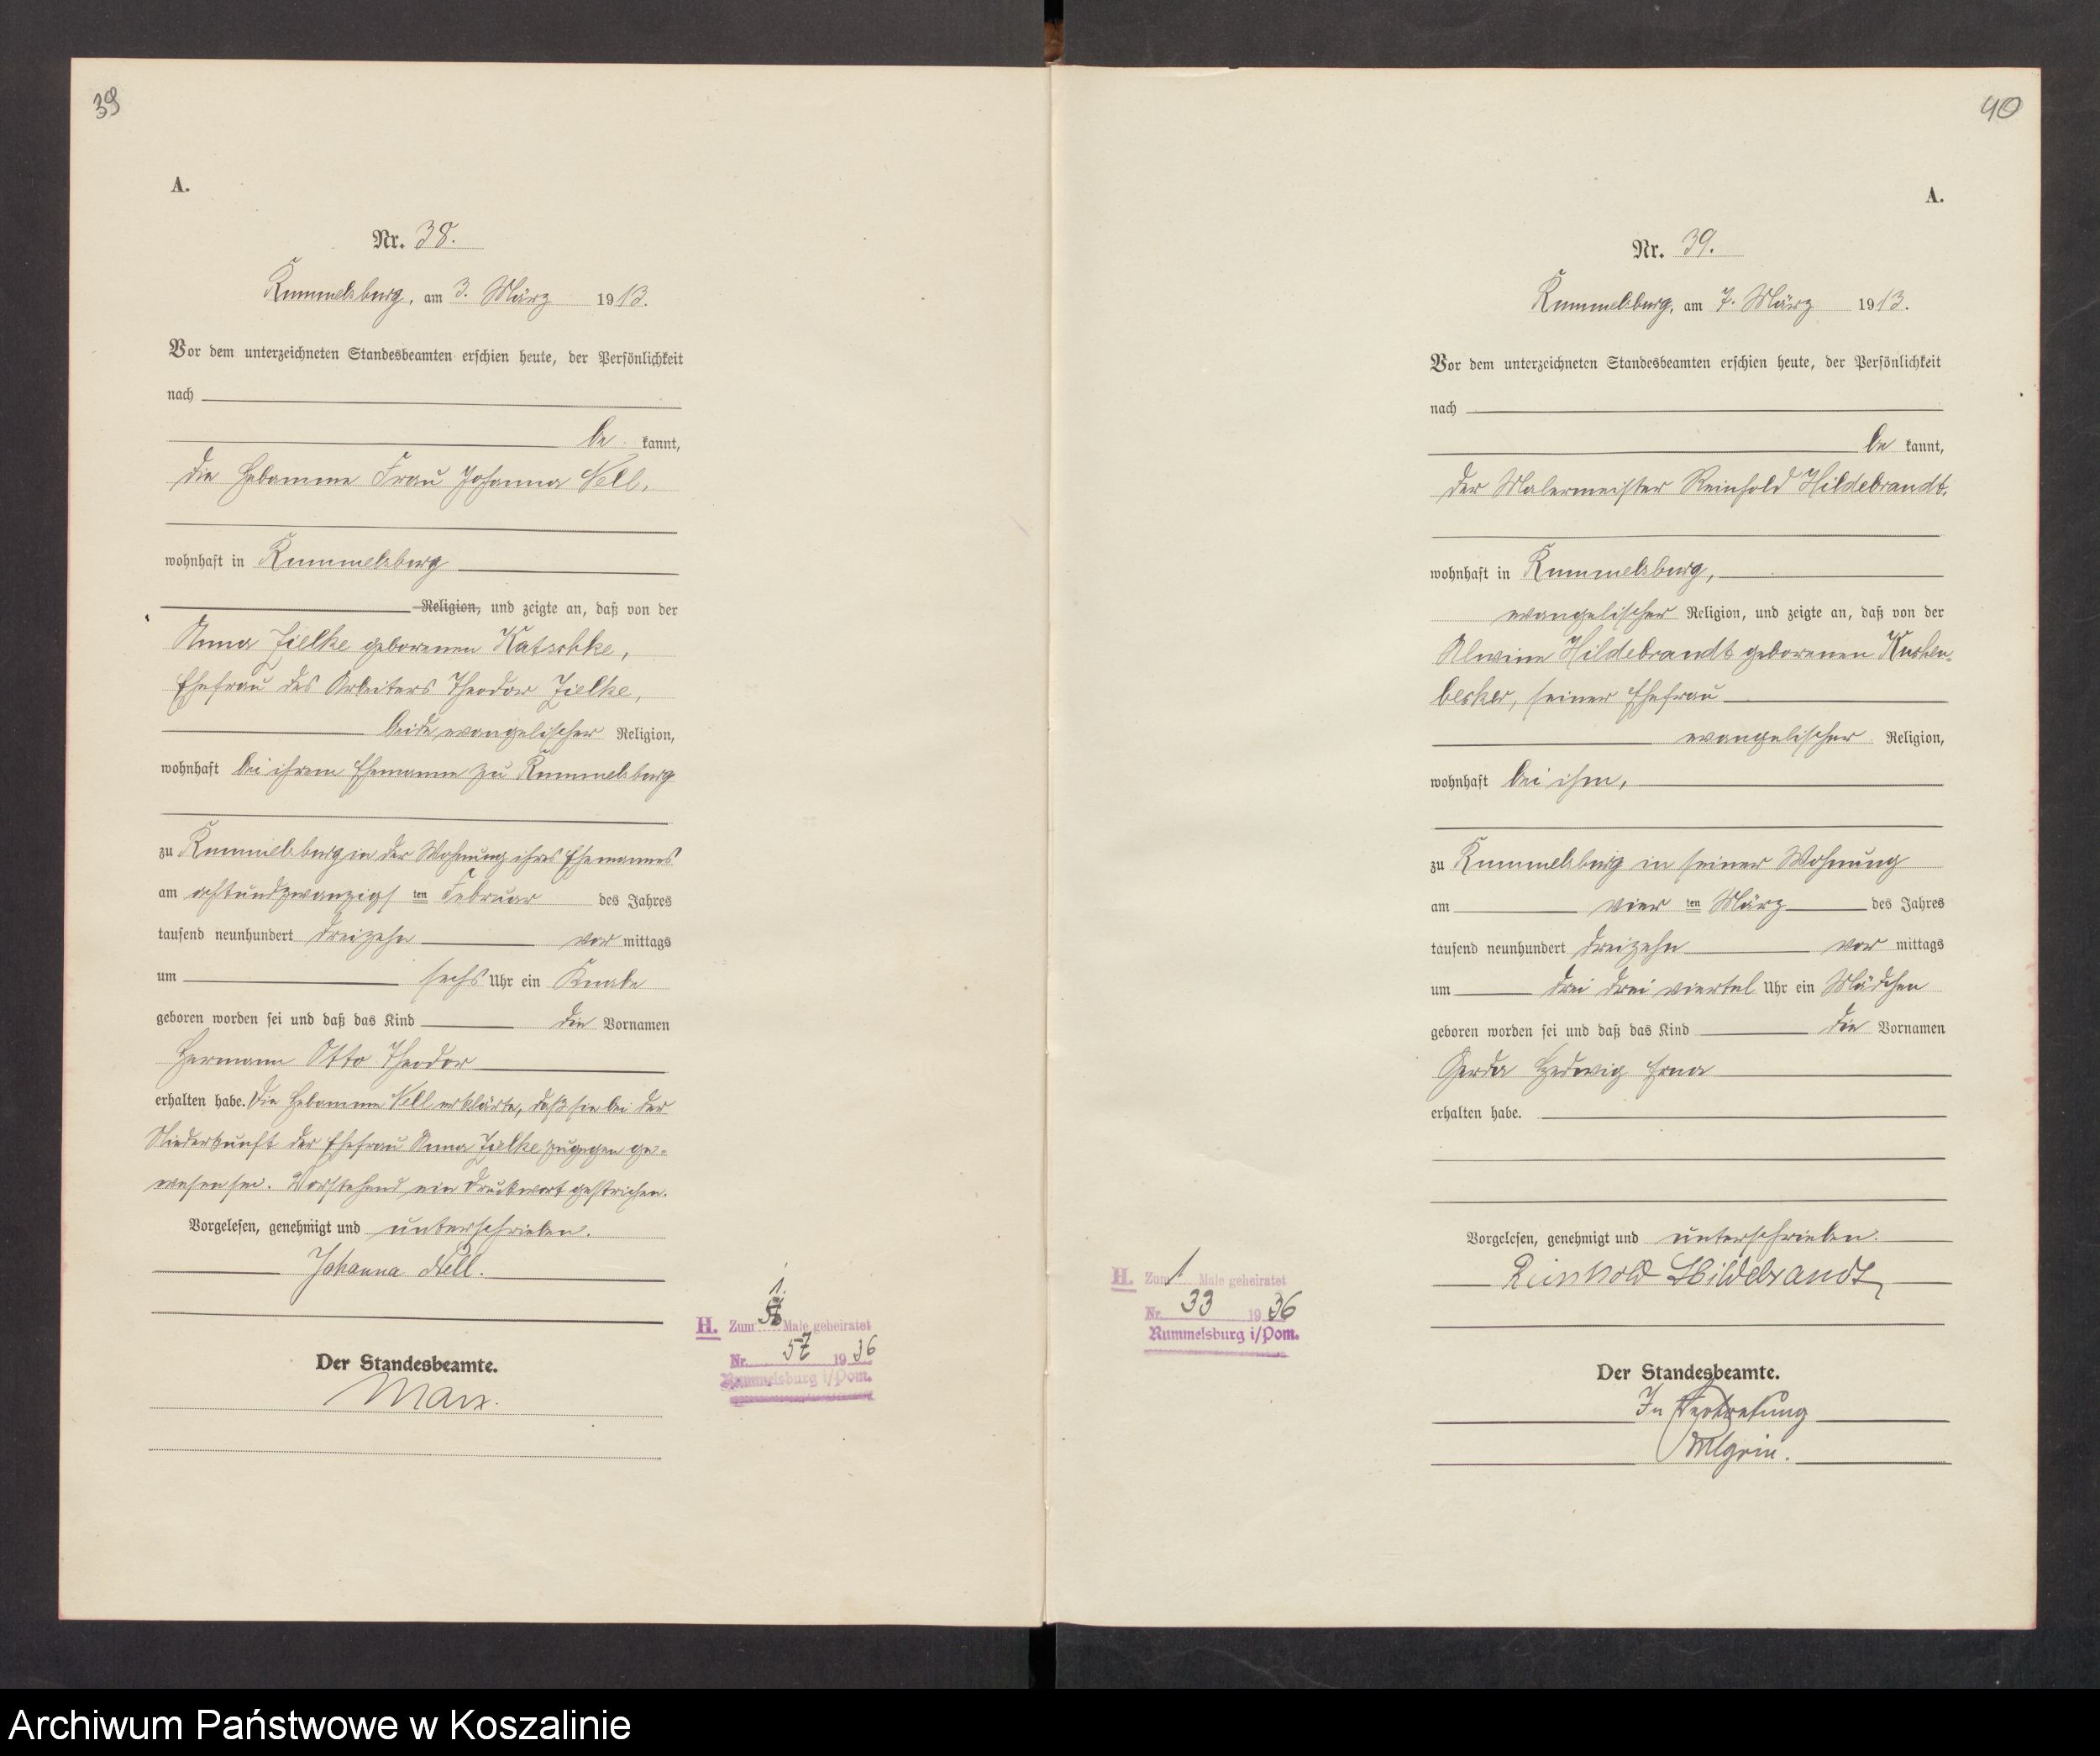 39
A.
Nr. 38.
Rummelsburg, am 3. März 1913.
Vor dem unterzeichneten Standesbeamten erschien heute, der Persönlichkeit
nach
be kannt,
die Hebamme Frau Johanna Nell,
wohnhaft in Rummelsburg
Religion, und zeigte an, daß von der
Anna Zielke geborenen Katschke,
Ehefrau des Arbeiters Theodor Zielke,
beide evangelischer Religion,
wohnhaft bei ihrem Ehemanne zu Rummelsburg
zu Rummelsburg in der Wohnung ihres Ehemannes
am achtundzwanzigsten Februar des Jahres
tausend neunhundert dreizehn vor mittags
um sechs Uhr ein Knabe
geboren worden sei und daß das Kind die Vornamen
Hermann Otto Theodor
erhalten habe. Die Hebamme Nell erklärte, daß sie bei der
Niederkunft der Ehefrau Anna Zielke zugegen ge-
wesen sei. Vorstehend ein Druckwort gestrichen.
Vorgelesen, genehmigt und unterschrieben.
Johanna Nell.
Der Standesbeamte.
Marx.
H. Zum 1. Male geheiratet
Nr. 57 1936
Rummelsburg i/Pom.
40
A.
Nr. 39.
Rummelsburg, am 7. März 1913.
Vor dem unterzeichneten Standesbeamten erschien heute, der Persönlichkeit
nach
be kannt,
der Malermeister Reinhold Hildebrandt,
wohnhaft in Rummelsburg,
evangelischer Religion, und zeigte an, daß von der
Alwine Hildebrandt geborenen Kuchen-
becker, seiner Ehefrau
evangelischer Religion,
wohnhaft bei ihm,
zu Rummelsburg in seiner Wohnung
am vier ten März des Jahres
tausend neunhundert dreizehn vor mittags
um drei drei viertel Uhr ein Mädchen
geboren worden sei und daß das Kind die Vornamen
Gerda Hedwig Erna
erhalten habe.
Vorgelesen, genehmigt und unterschrieben.
Reinhold Hildebrandt
Der Standesbeamte.
In Vertretung
H. Zum 1 Male geheiratet
Nr. 33 1936
Rummelsburg i/Pom.
Archiwum Państwowe w Koszalinie